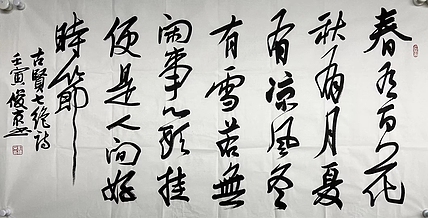 春有百花
秋有月夏
有凉风冬
有雪若無
闲事心頭挂
便是人间好
時節
古賢七绝诗
壬寅俊